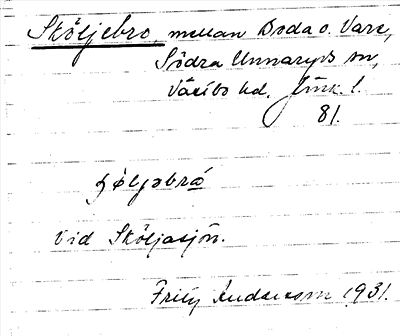 Sköljebro, mellan Boda o. Vare,
Södra Unnaryds sn,
Västbo hd. Jönk. l.
81.
ʃöljabrå
Vid Sköljasjön.
Frits Andersson 1931.